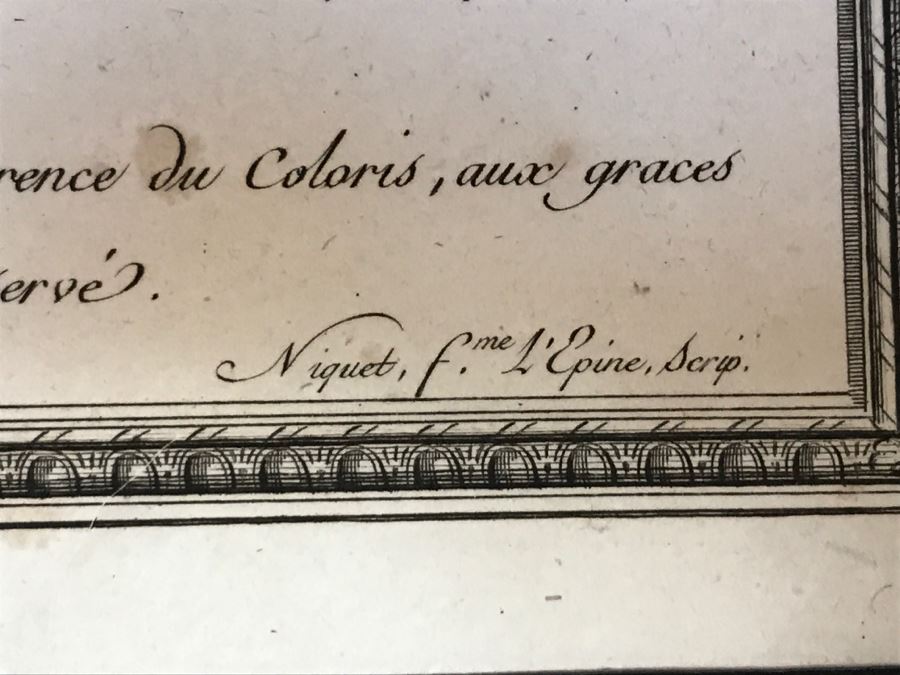 rence du Coloris, aux graces
ervé.
Niquet, f.me L'Epine, Scrip.